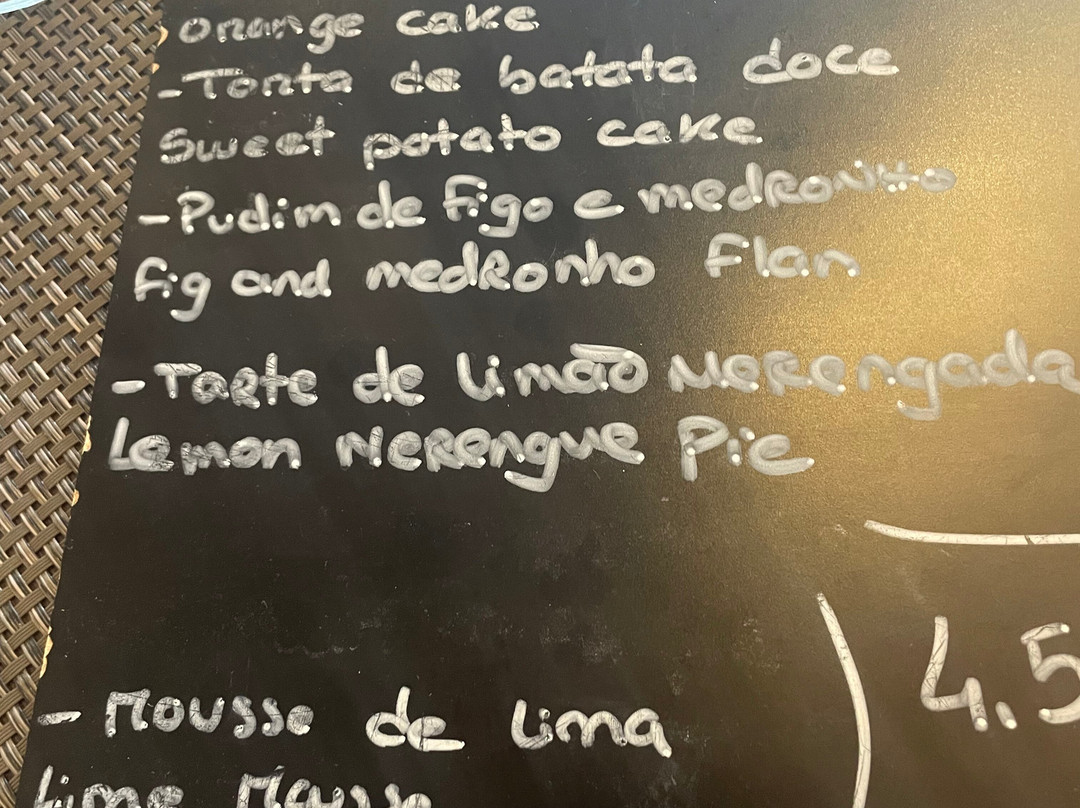 orange cake
- Torta de batata doce
Sweet potato cake
- Pudim de figo e medronho
fig and medronho flan
- Tarte de limão Merengada
Lemon Merengue Pie
4.5
- Mousse de Lima
Lime Mousse